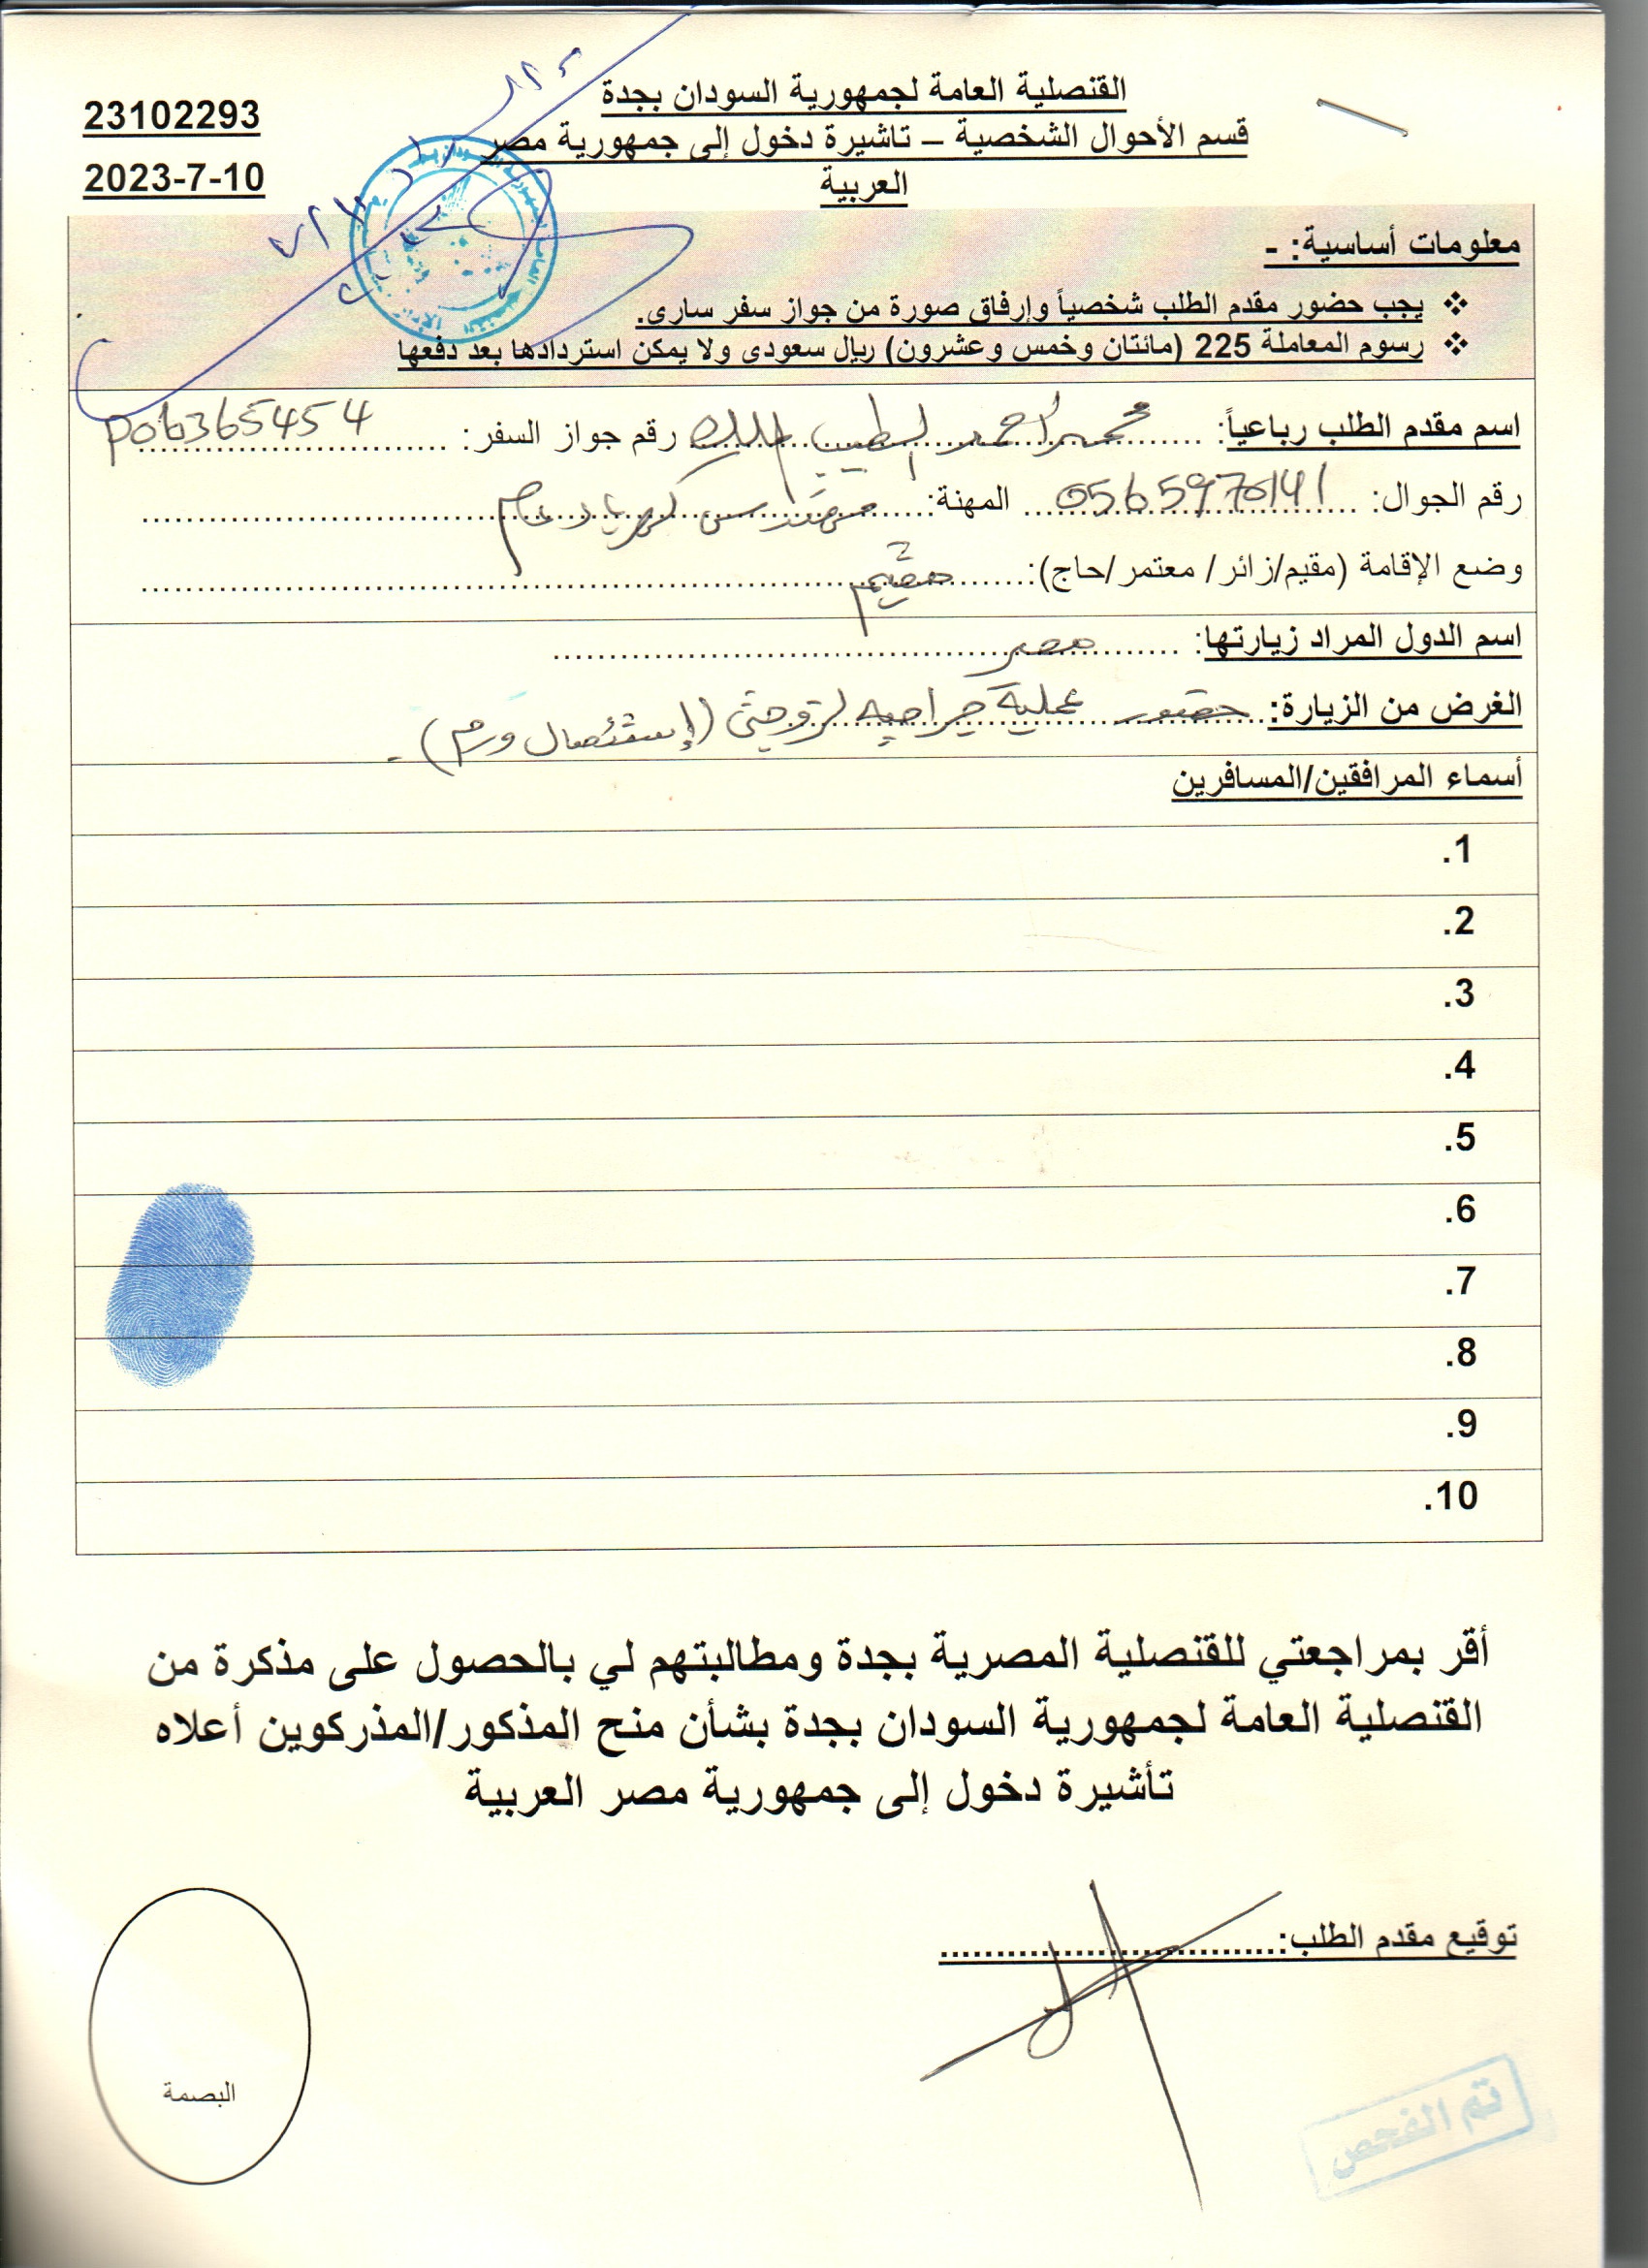 القنصلية العامة لجمهورية السودان بجدة
23102293
قسم الأحوال الشخصية – تاشيرة دخول إلى جمهورية مصر
العربية
2023-7-10
معلومات أساسية: -
❖ يجب حضور مقدم الطلب شخصياً وإرفاق صورة من جواز سفر سارى.
❖ رسوم المعاملة 225 (مائتان وخمس وعشرون) ريال سعودى ولا يمكن استردادها بعد دفعها
اسم مقدم الطلب رباعياً: محمد احمد الطيب رقم جواز السفر: P06365454
رقم الجوال: 0565970141 المهنة: مهندس كهرباء عام
وضع الإقامة (مقيم/زائر/ معتمر/حاج): مقيم
اسم الدول المراد زيارتها: مصر
الغرض من الزيارة: حضور عملية جراحيه لزوجتى (إستئصال ورم).
أسماء المرافقين/المسافرين
1.
2.
3.
4.
5.
6.
7.
8.
9.
10.
أقر بمراجعتي للقنصلية المصرية بجدة ومطالبتهم لي بالحصول على مذكرة من
القنصلية العامة لجمهورية السودان بجدة بشأن منح المذكور/المذركوين أعلاه
تأشيرة دخول إلى جمهورية مصر العربية
توقيع مقدم الطلب:
البصمة
تم الفحص